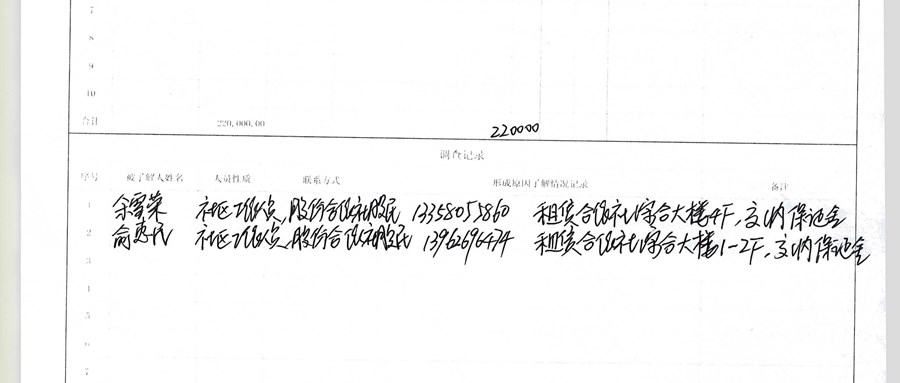 7
8
9
10
合计 220,000.00 220000
调查记录
序号 被了解人姓名 人员性质 联系方式 形成原因了解情况记录 备注
1 余雪荣 社区工作人员、股份合作社股民 13358055860 租赁合作社综合大楼4F，交纳保证金
2 俞惠民 社区工作人员、股份合作社股民 13962696474 租赁合作社综合大楼1-2F，交纳保证金
3
4
5
6
7